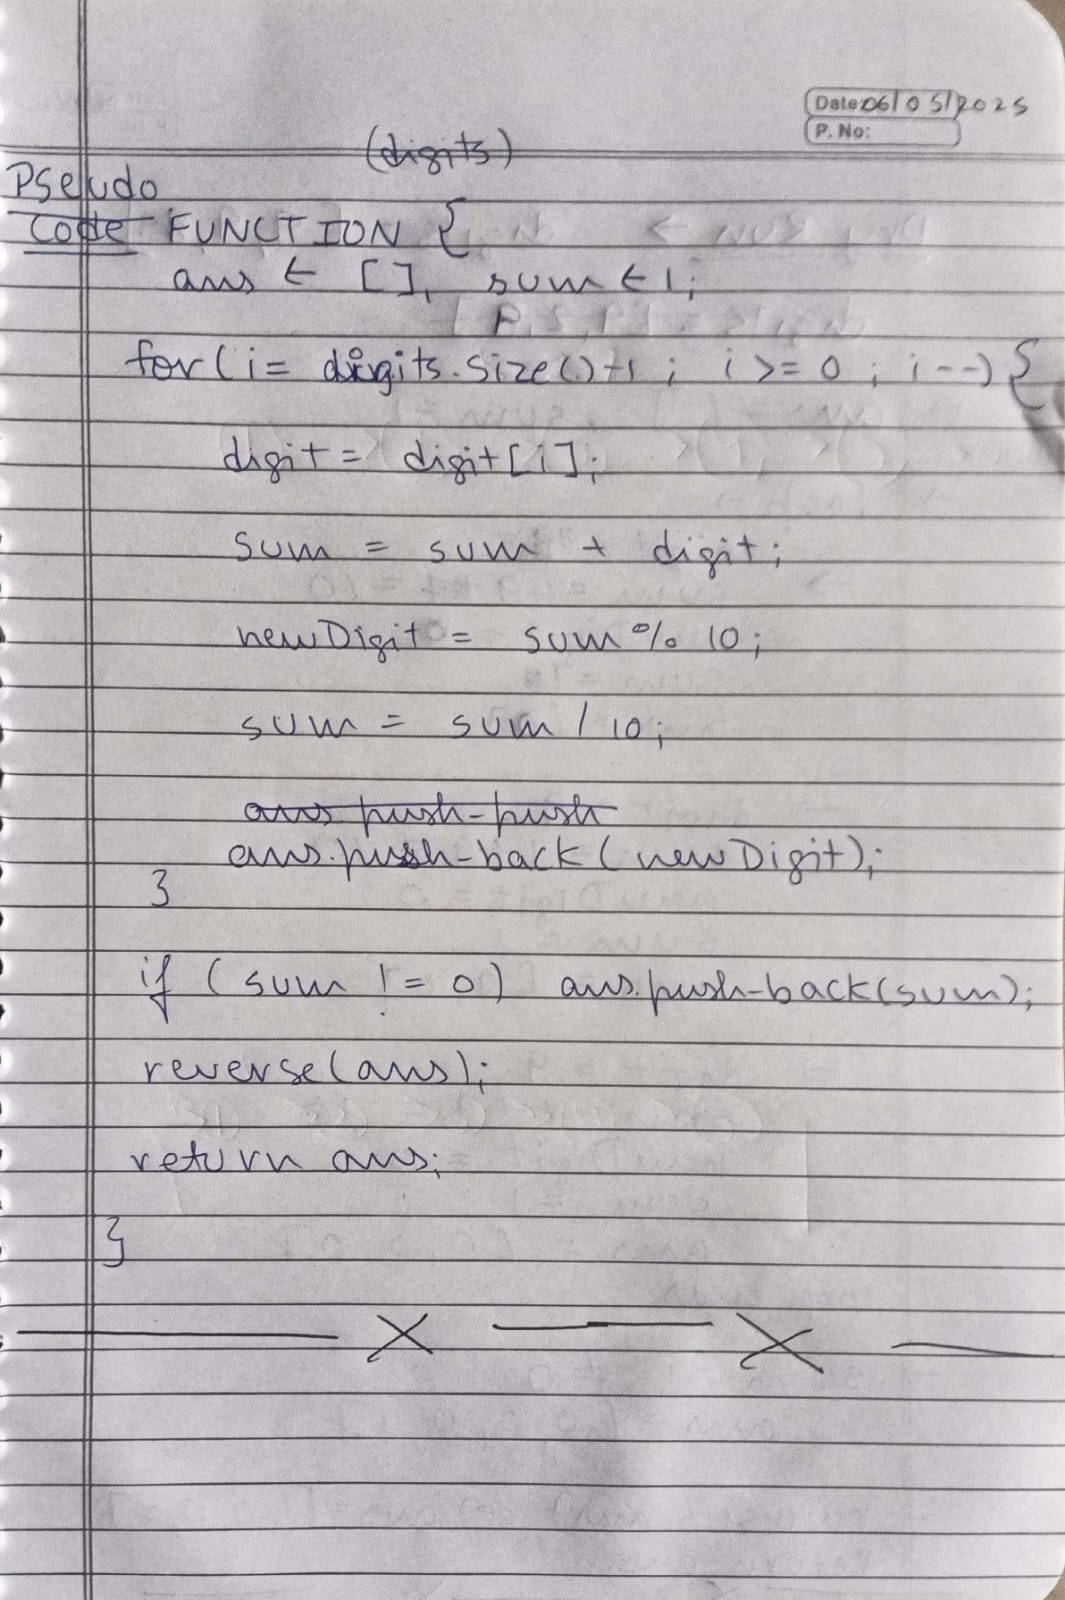 Date: 06/05/2025
P. No:
(digits)
Pseudo
Code FUNCTION {
ans ← [], sum ← 1;
for (i = digits.size()+1 ; i >= 0 ; i--) {
digit = digit[i];
sum = sum + digit;
newDigit = sum % 10;
sum = sum / 10;
ans push-push
ans.push-back(newDigit);
}
if (sum != 0) ans.push-back(sum);
reverse(ans);
return ans;
}